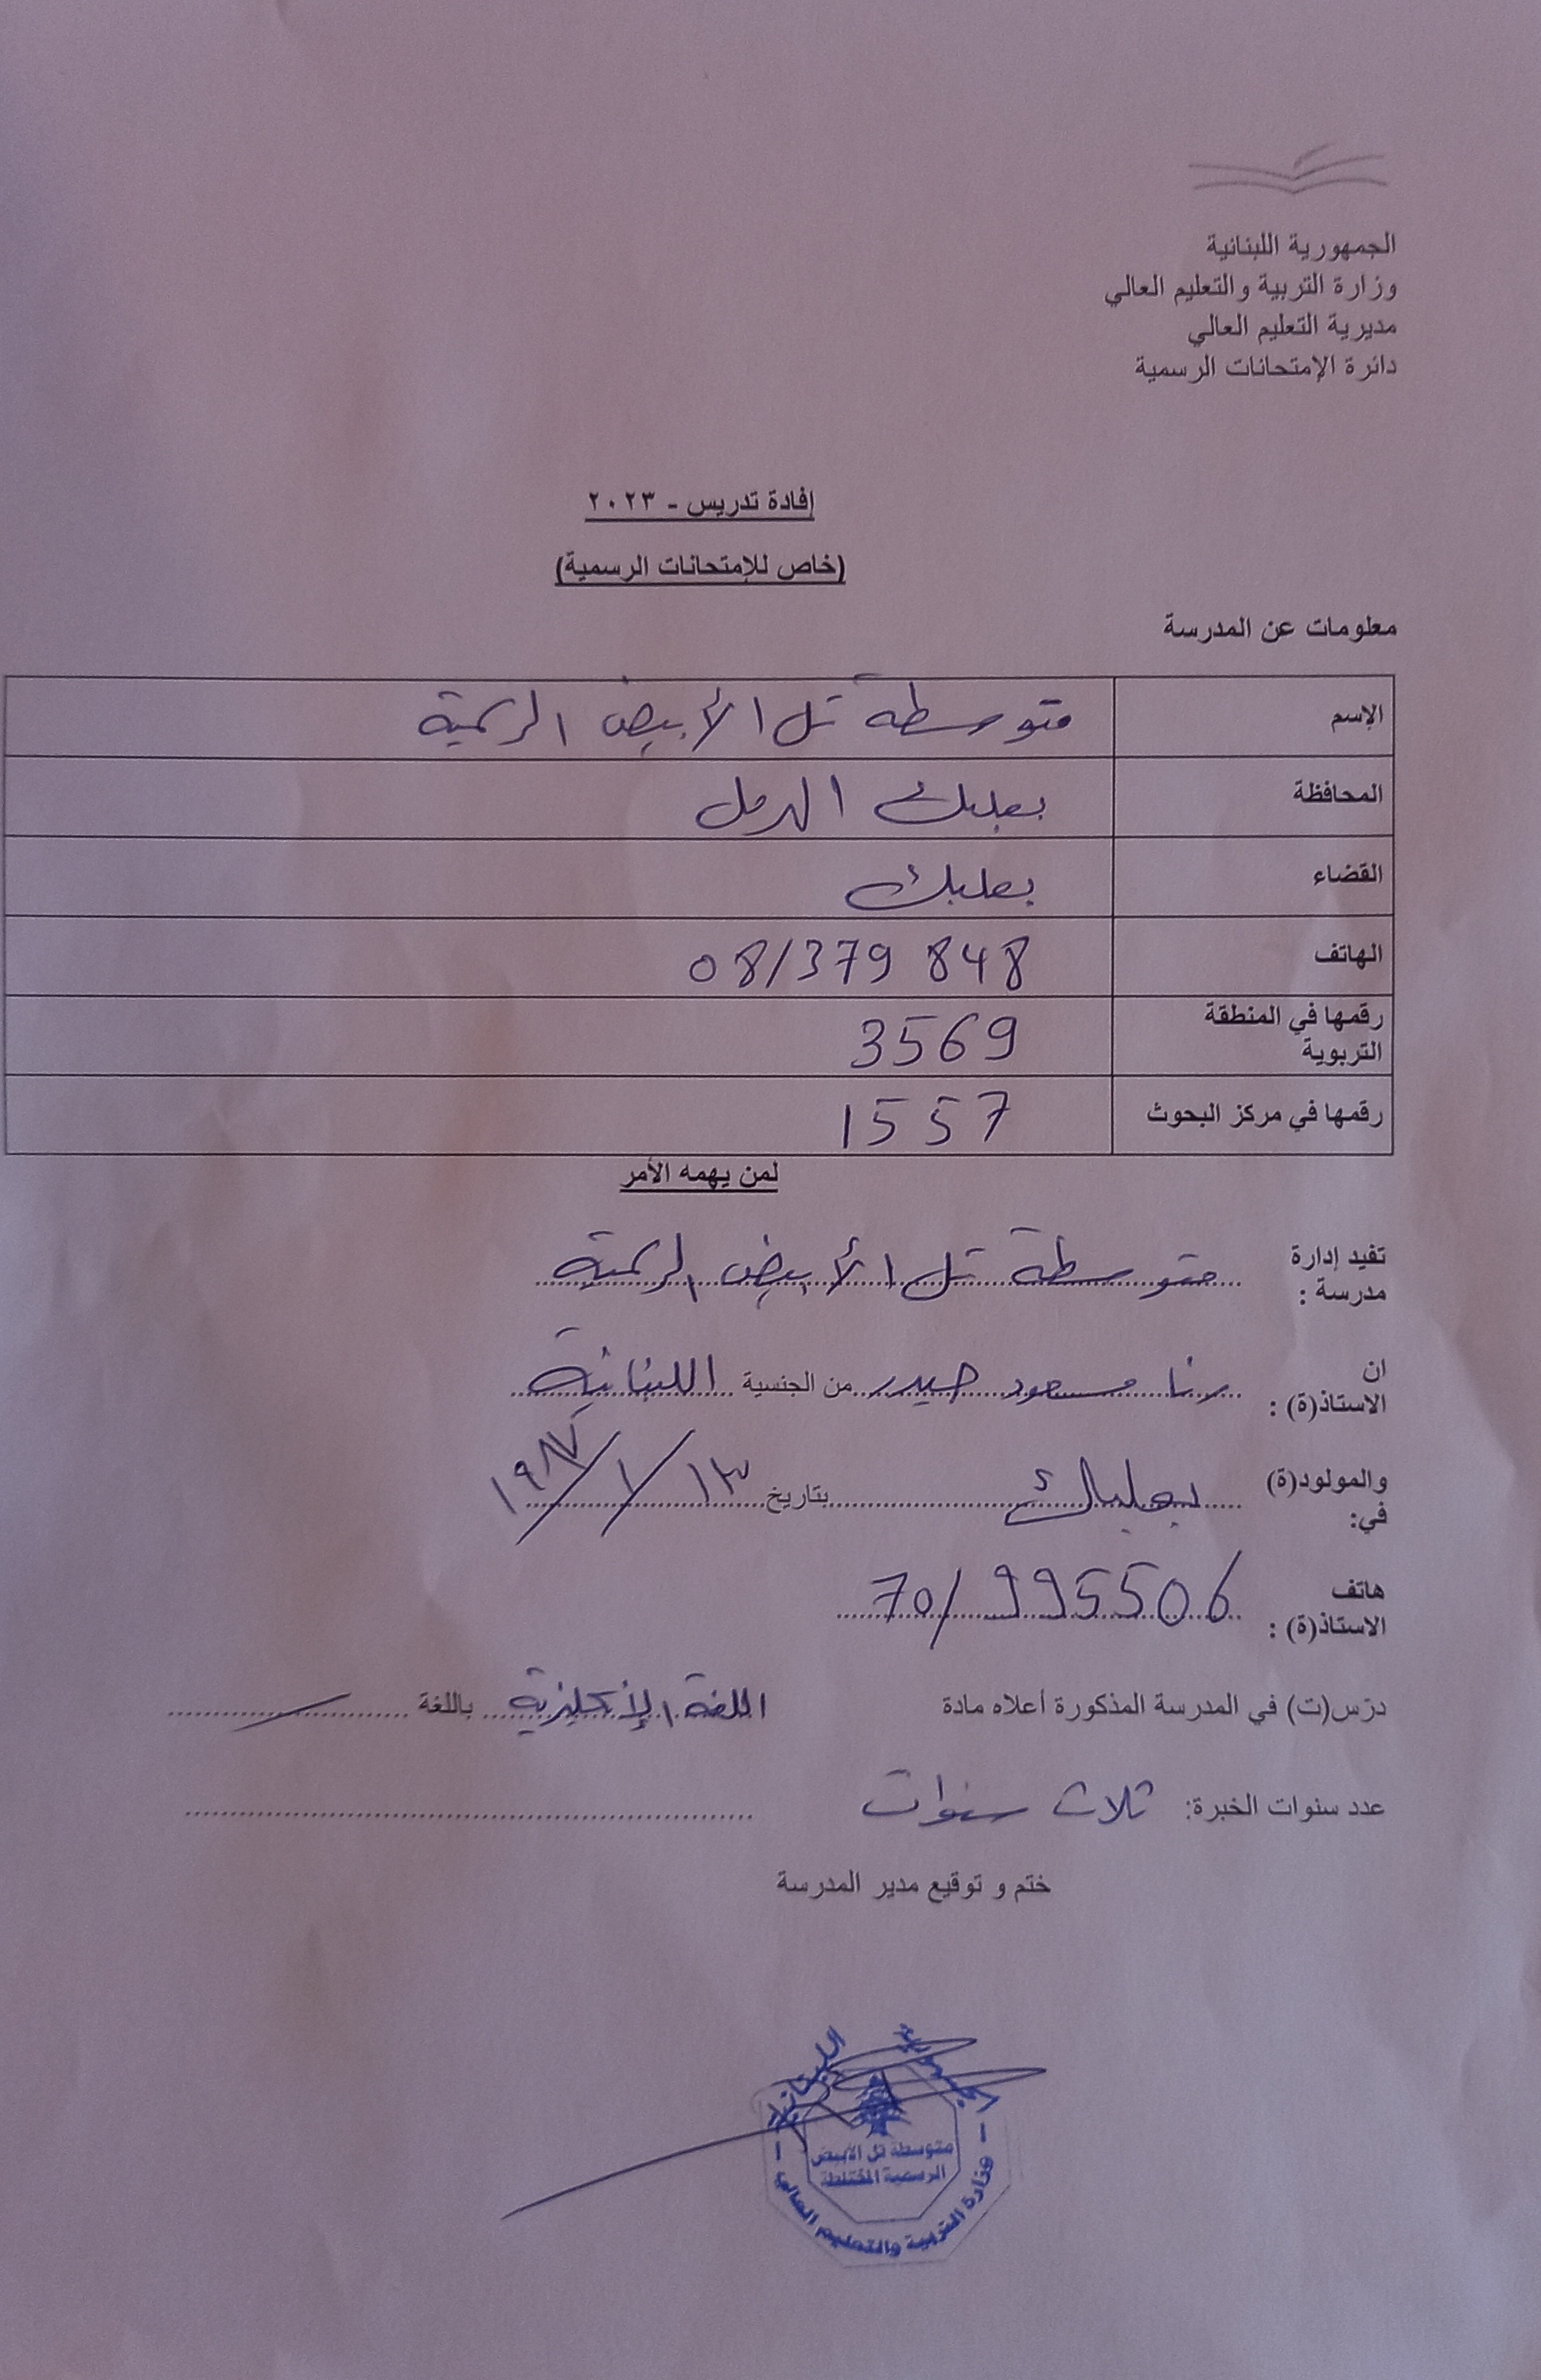 الجمهورية اللبنانية
وزارة التربية والتعليم العالي
مديرية التعليم العالي
دائرة الإمتحانات الرسمية
إفادة تدريس - ٢٠٢٣
(خاص للإمتحانات الرسمية)
معلومات عن المدرسة
الإسم متوسطة تل الأبيض الرسمية
المحافظة بعلبك الهرمل
القضاء بعلبك
الهاتف 08/379 848
رقمها في المنطقة التربوية 3569
رقمها في مركز البحوث 1557
لمن يهمه الأمر
تفيد إدارة مدرسة : متوسطة تل الأبيض الرسمية
ان الاستاذ(ة) : رنا مسعود حيدر من الجنسية اللبنانية
والمولود(ة) في: بعلبك بتاريخ ١٣/١/١٩٨٧
هاتف الاستاذ(ة) : 70/995506
درّس(ت) في المدرسة المذكورة أعلاه مادة اللغة الإنكليزية باللغة
عدد سنوات الخبرة: ثلاث سنوات
ختم و توقيع مدير المدرسة
الجمهورية اللبنانية
متوسطة تل الأبيض
الرسمية المختلطة
وزارة التربية والتعليم العالي